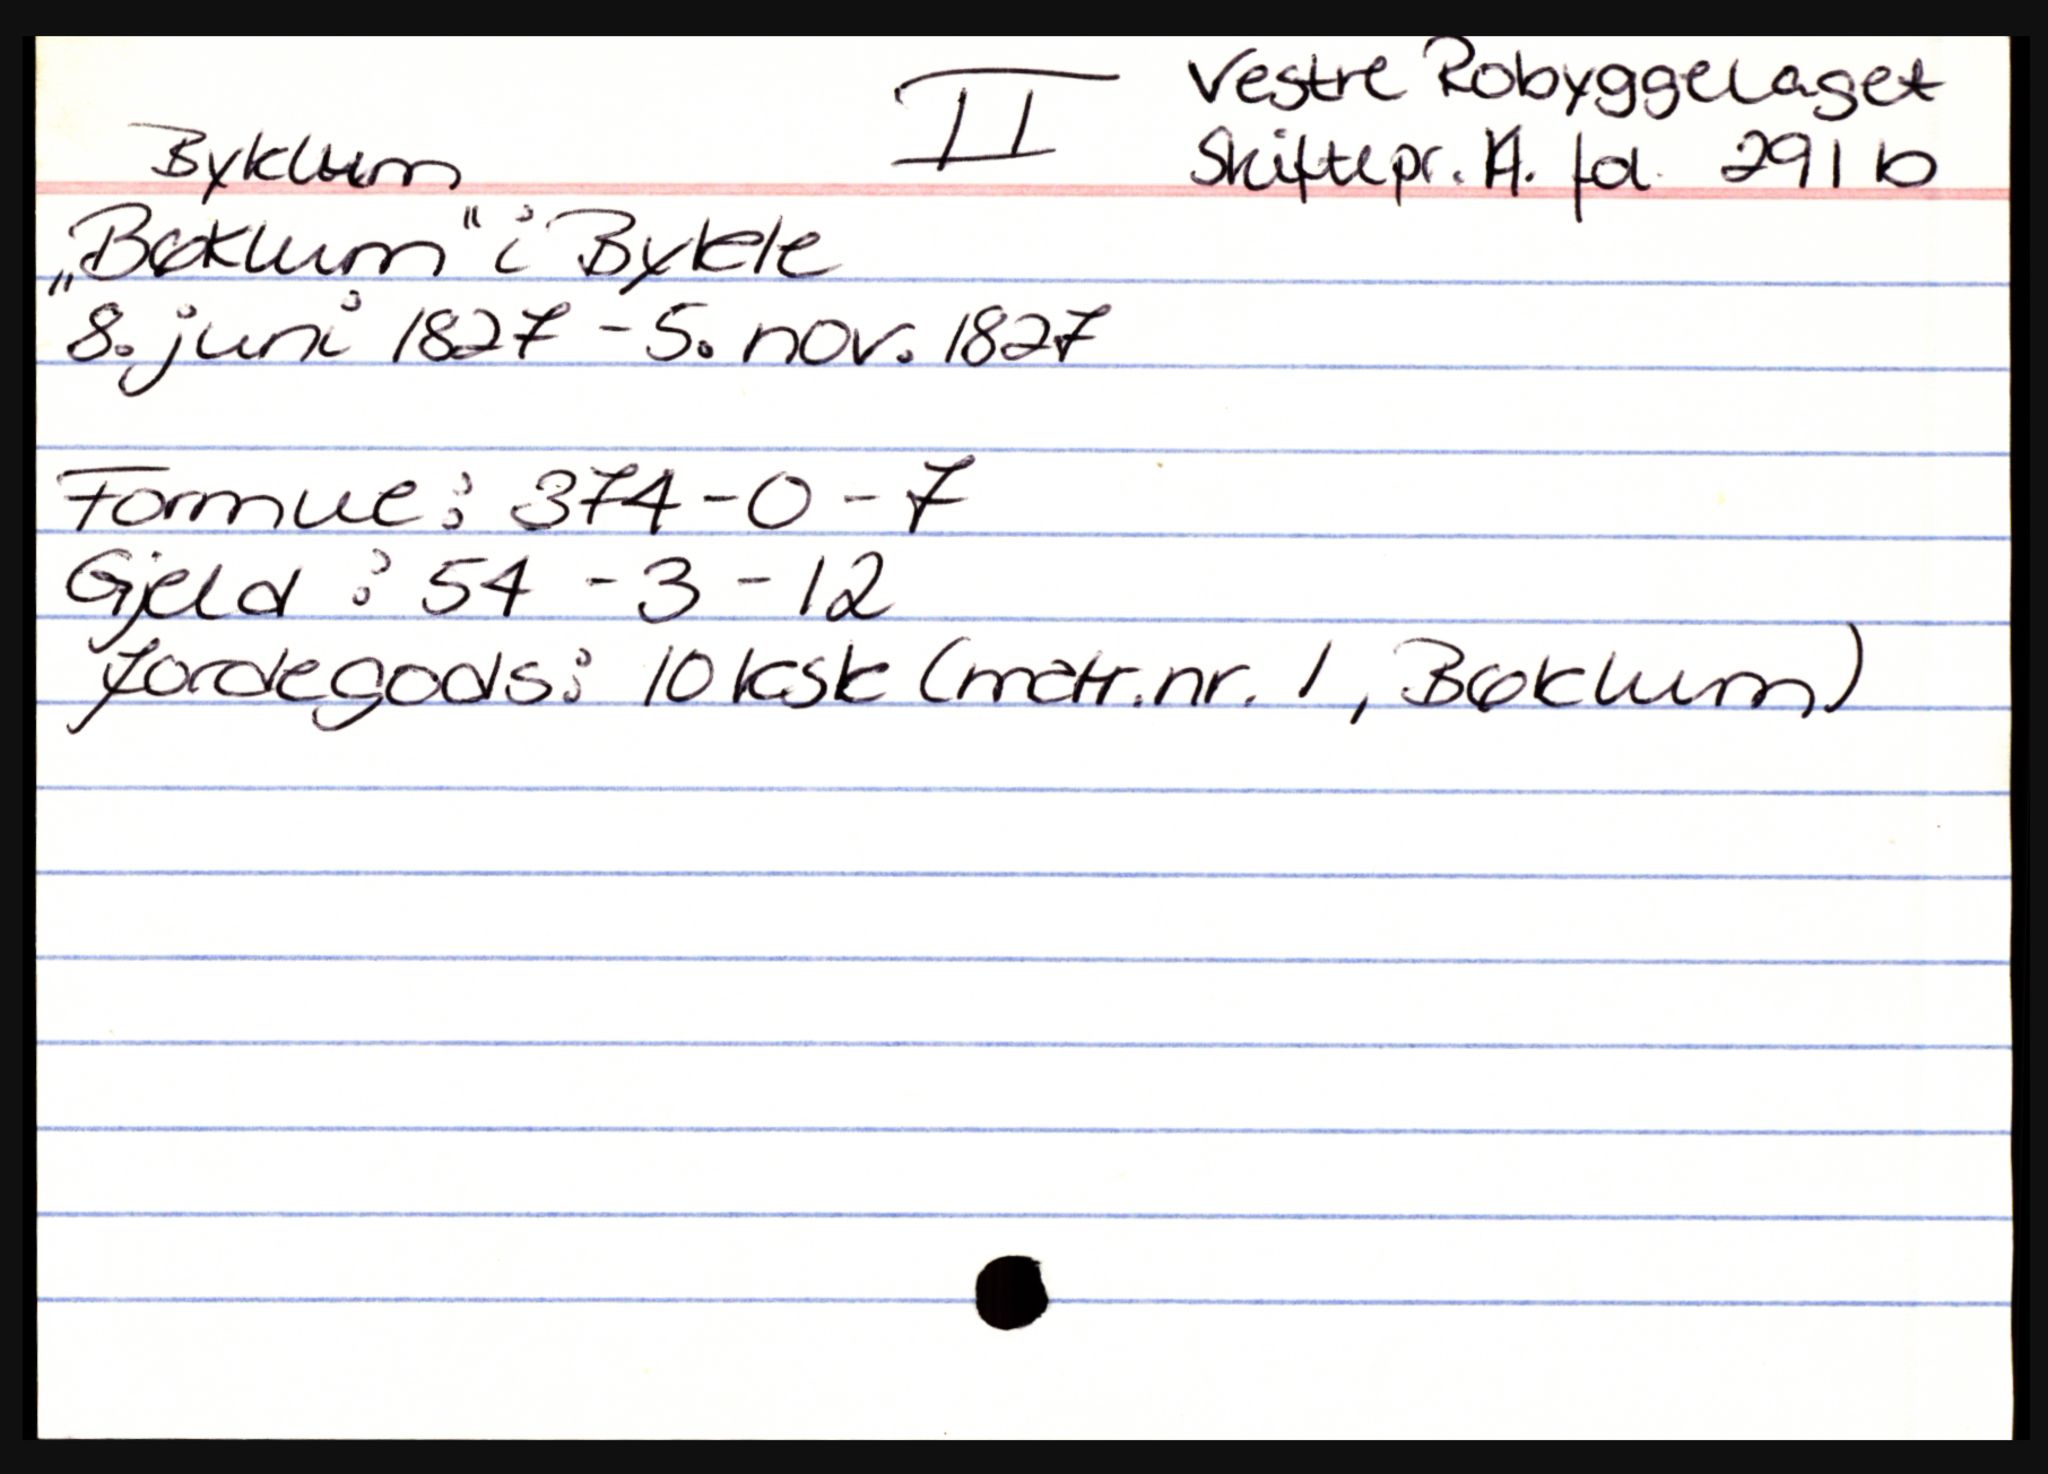 II
Vestre Robyggelaget
Skiftepr. A. fol. 291 b
Byklum
„Bøklum" i Bykle
8. juni 1827 - 5. nov. 1827
Formue: 374 - 0 - 7
Gjeld: 54 - 3 - 12
Jordegods: 10 ksk (matr.nr. 1, Bøklum)